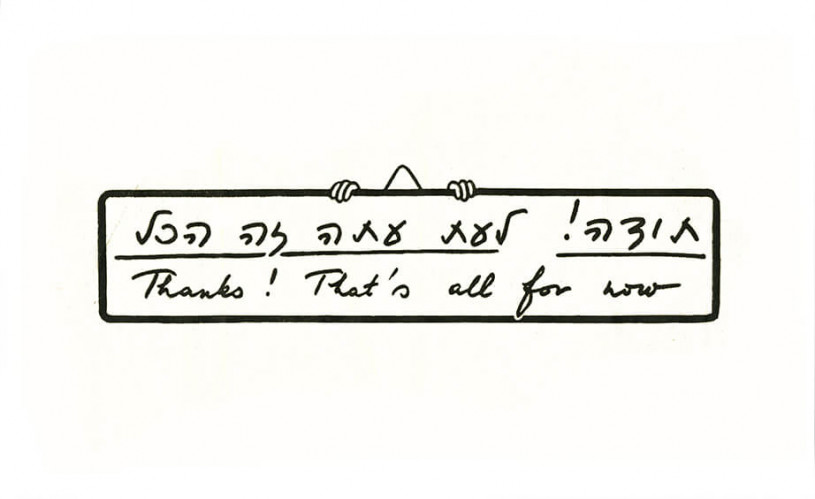 תודה! לעת עתה זה הכל
Thanks! That's all for now